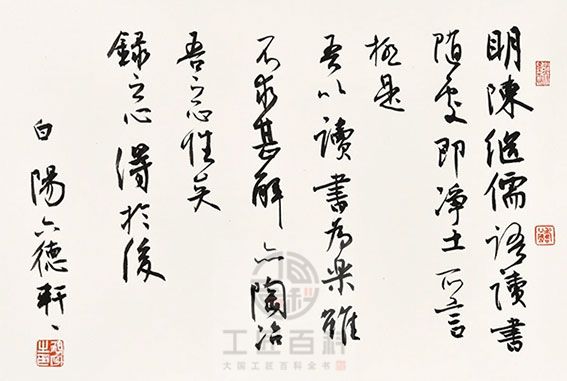 明陳继儒語讀書
随處即净土所言
極是
吾以讀書為樂雖
不求甚解亦陶冶
吾之心性矣
録之心得於後
白陽六德軒
工匠百科
大国工匠百科全书